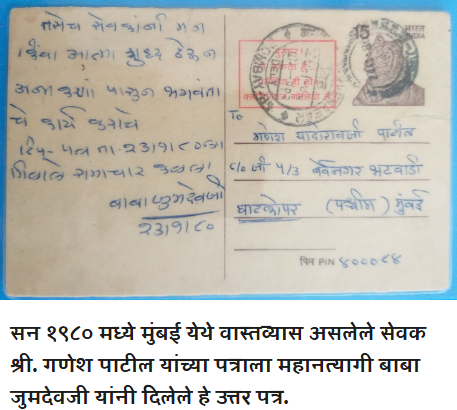 तसेच सेवकांनी मन
किंवा आत्मा शुध्द ठेऊन
पासुन भगवंता
चे कार्य करावे
टिप- पत्र ता- २३।१।८० ला
समाचार कळला
बाबा जुमदेवजी
२३।१।८०
15
भारत
INDIA
To
गणेश यादोरावजी पाटील
c/o जी ५/३ भटवाडी
घाटकोपर (पश्चीम) मुंबई
पिन PIN ४०००८४
सन १९८० मध्ये मुंबई येथे वास्तव्यास असलेले सेवक
श्री. गणेश पाटील यांच्या पत्राला महानत्यागी बाबा
जुमदेवजी यांनी दिलेले हे उत्तर पत्र.